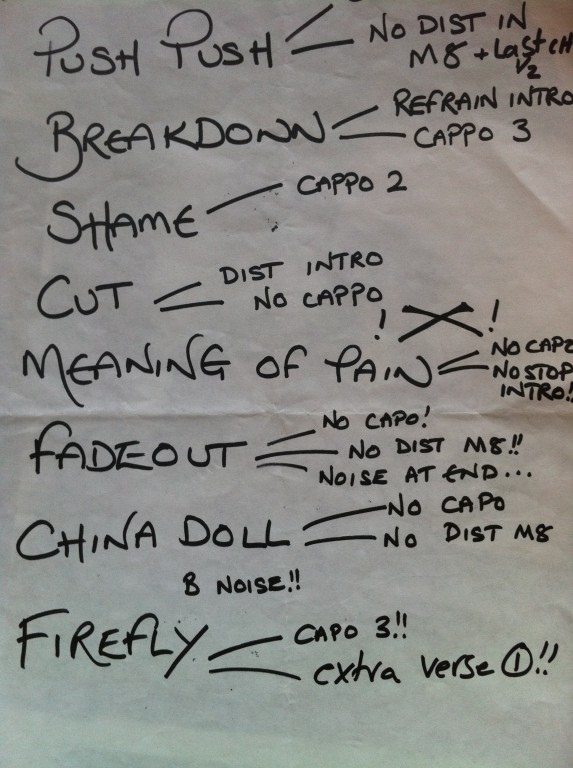 PUSH PUSH
NO DIST IN
M8 + Last CH
1/2
BREAKDOWN
REFRAIN INTRO
CAPPO 3
SHAME
CAPPO 2
CUT
DIST INTRO
NO CAPPO
! !
MEANING OF PAIN
NO CAPO
NO STOP
INTRO!
FADEOUT
NO CAPO!
NO DIST M8!!
NOISE AT END...
CHINA DOLL
NO CAPO
NO DIST M8
B NOISE!!
FIREFLY
CAPO 3!!
extra verse ①!!